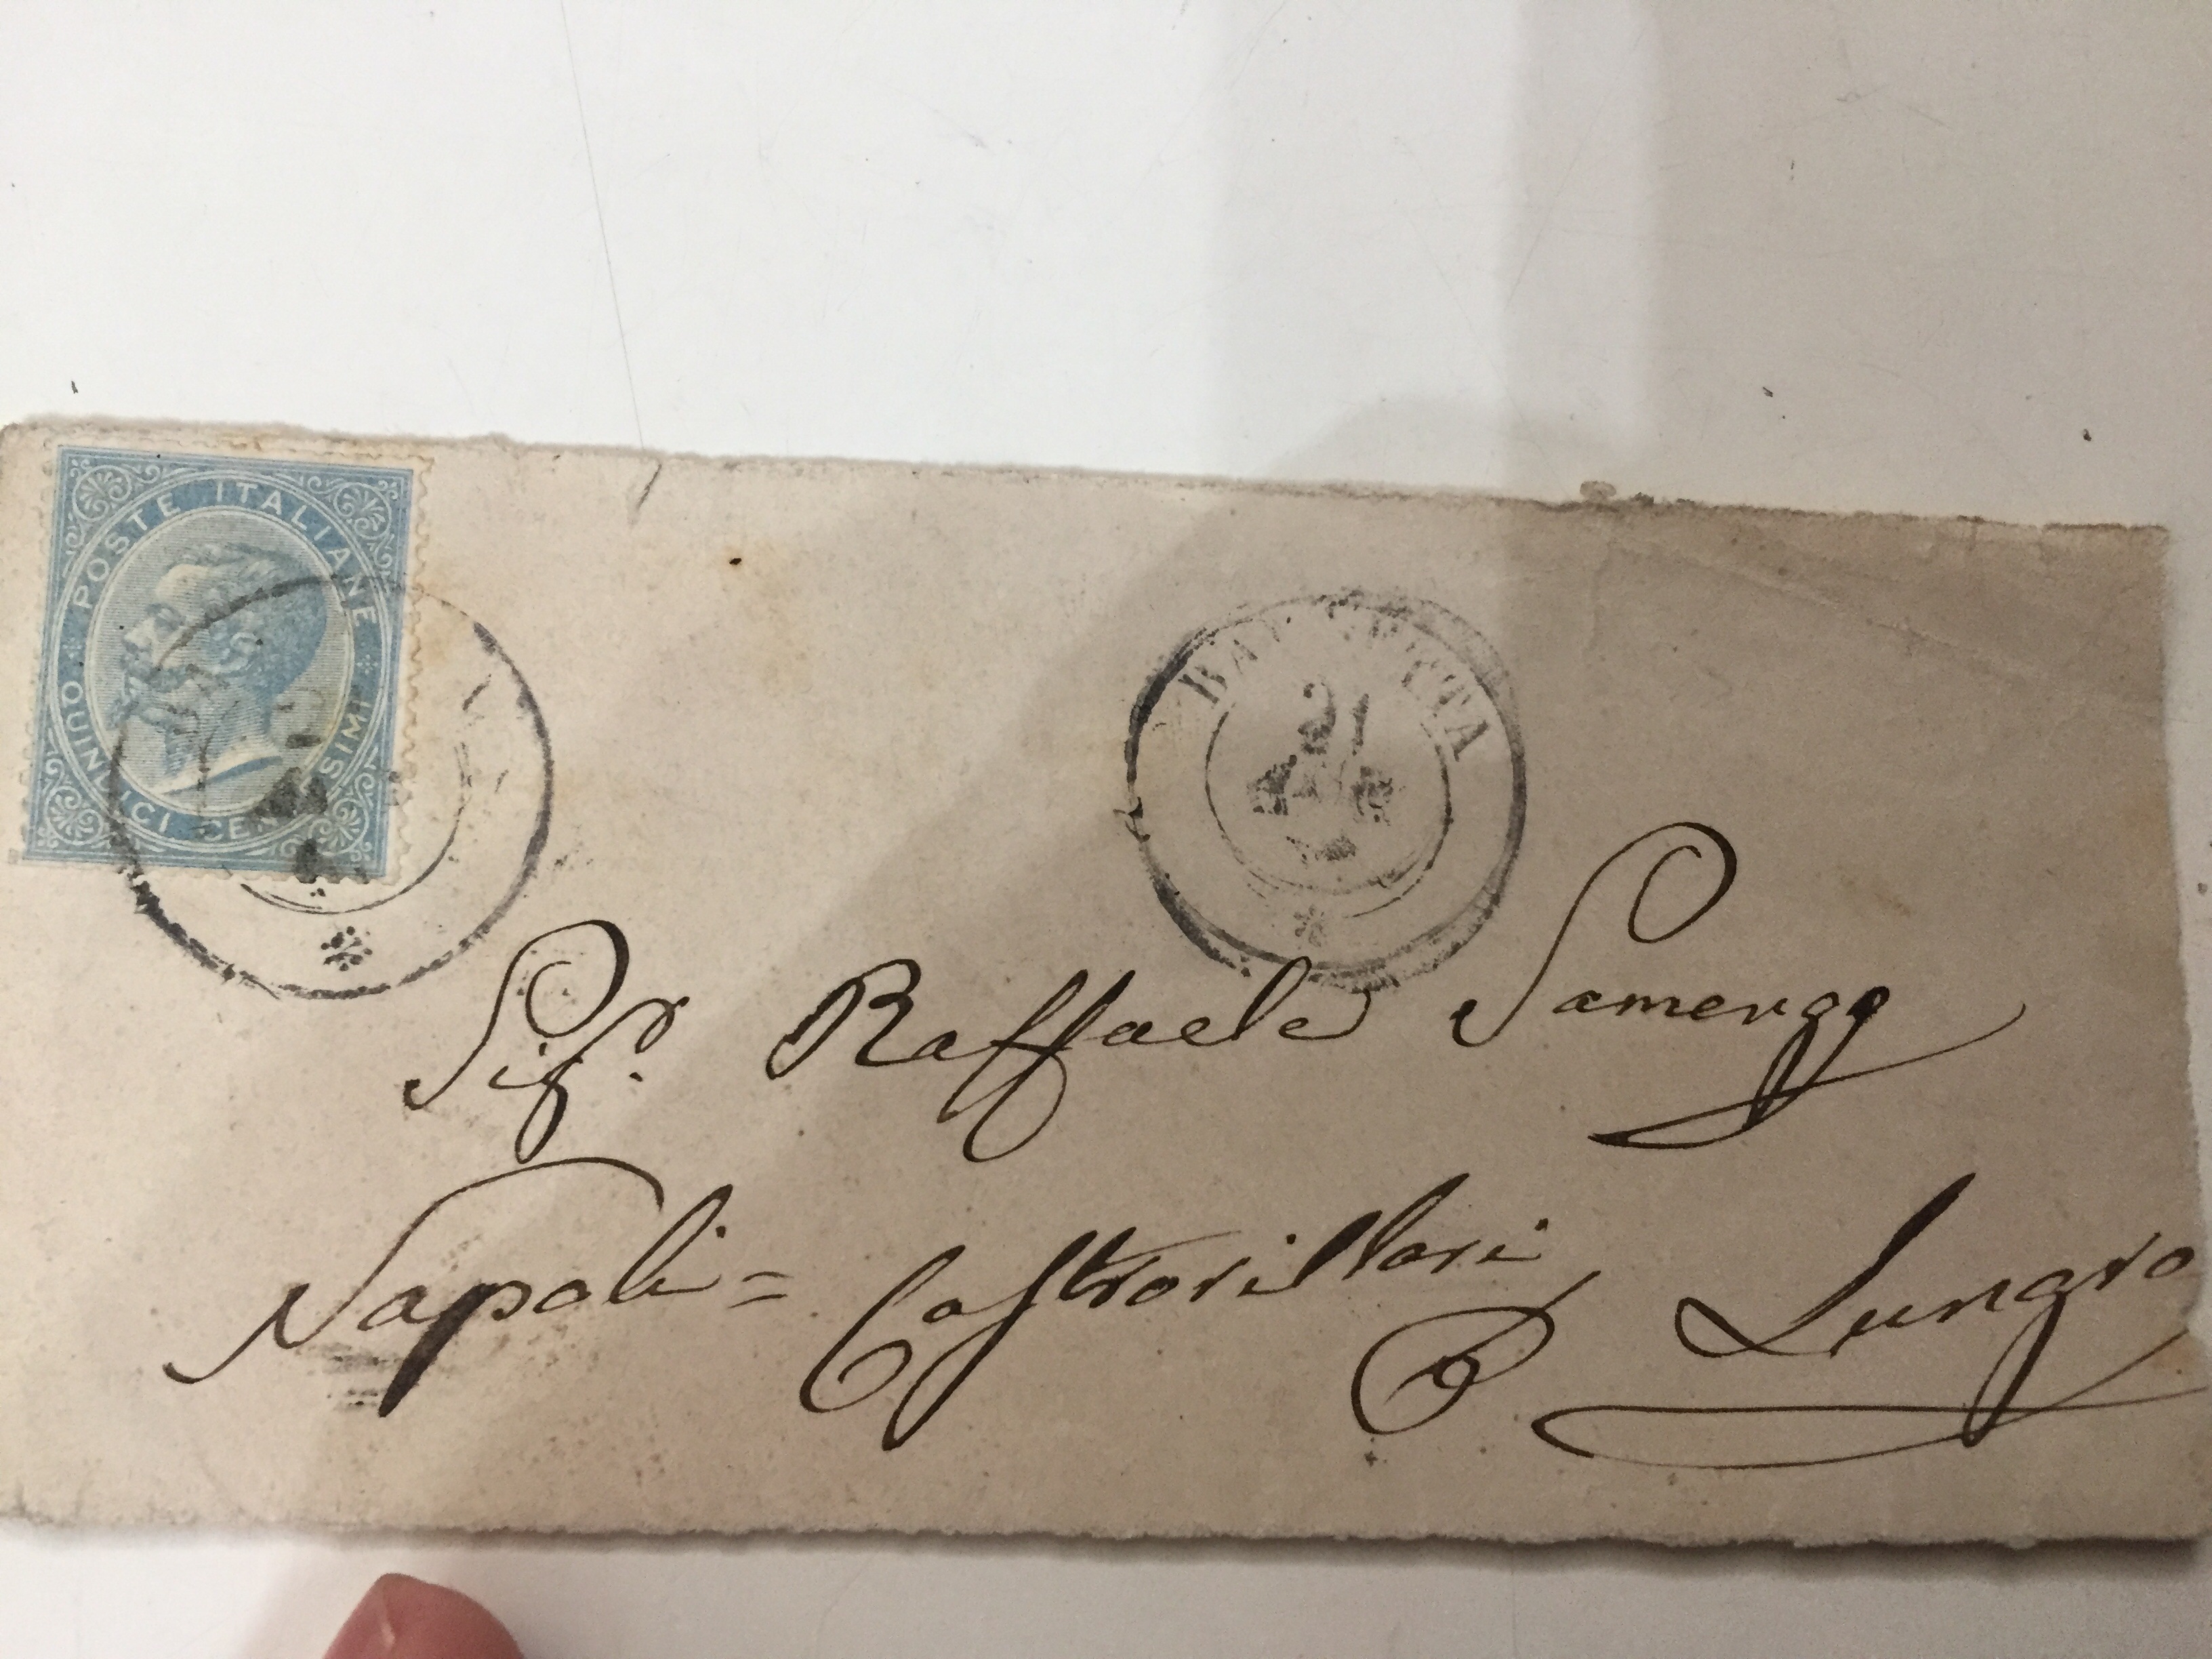 POSTE ITALIANE
QUINDICI CENTESIMI
21
Sigr. Raffaele Samengo
Napoli = Castrovillari
P. Lungro